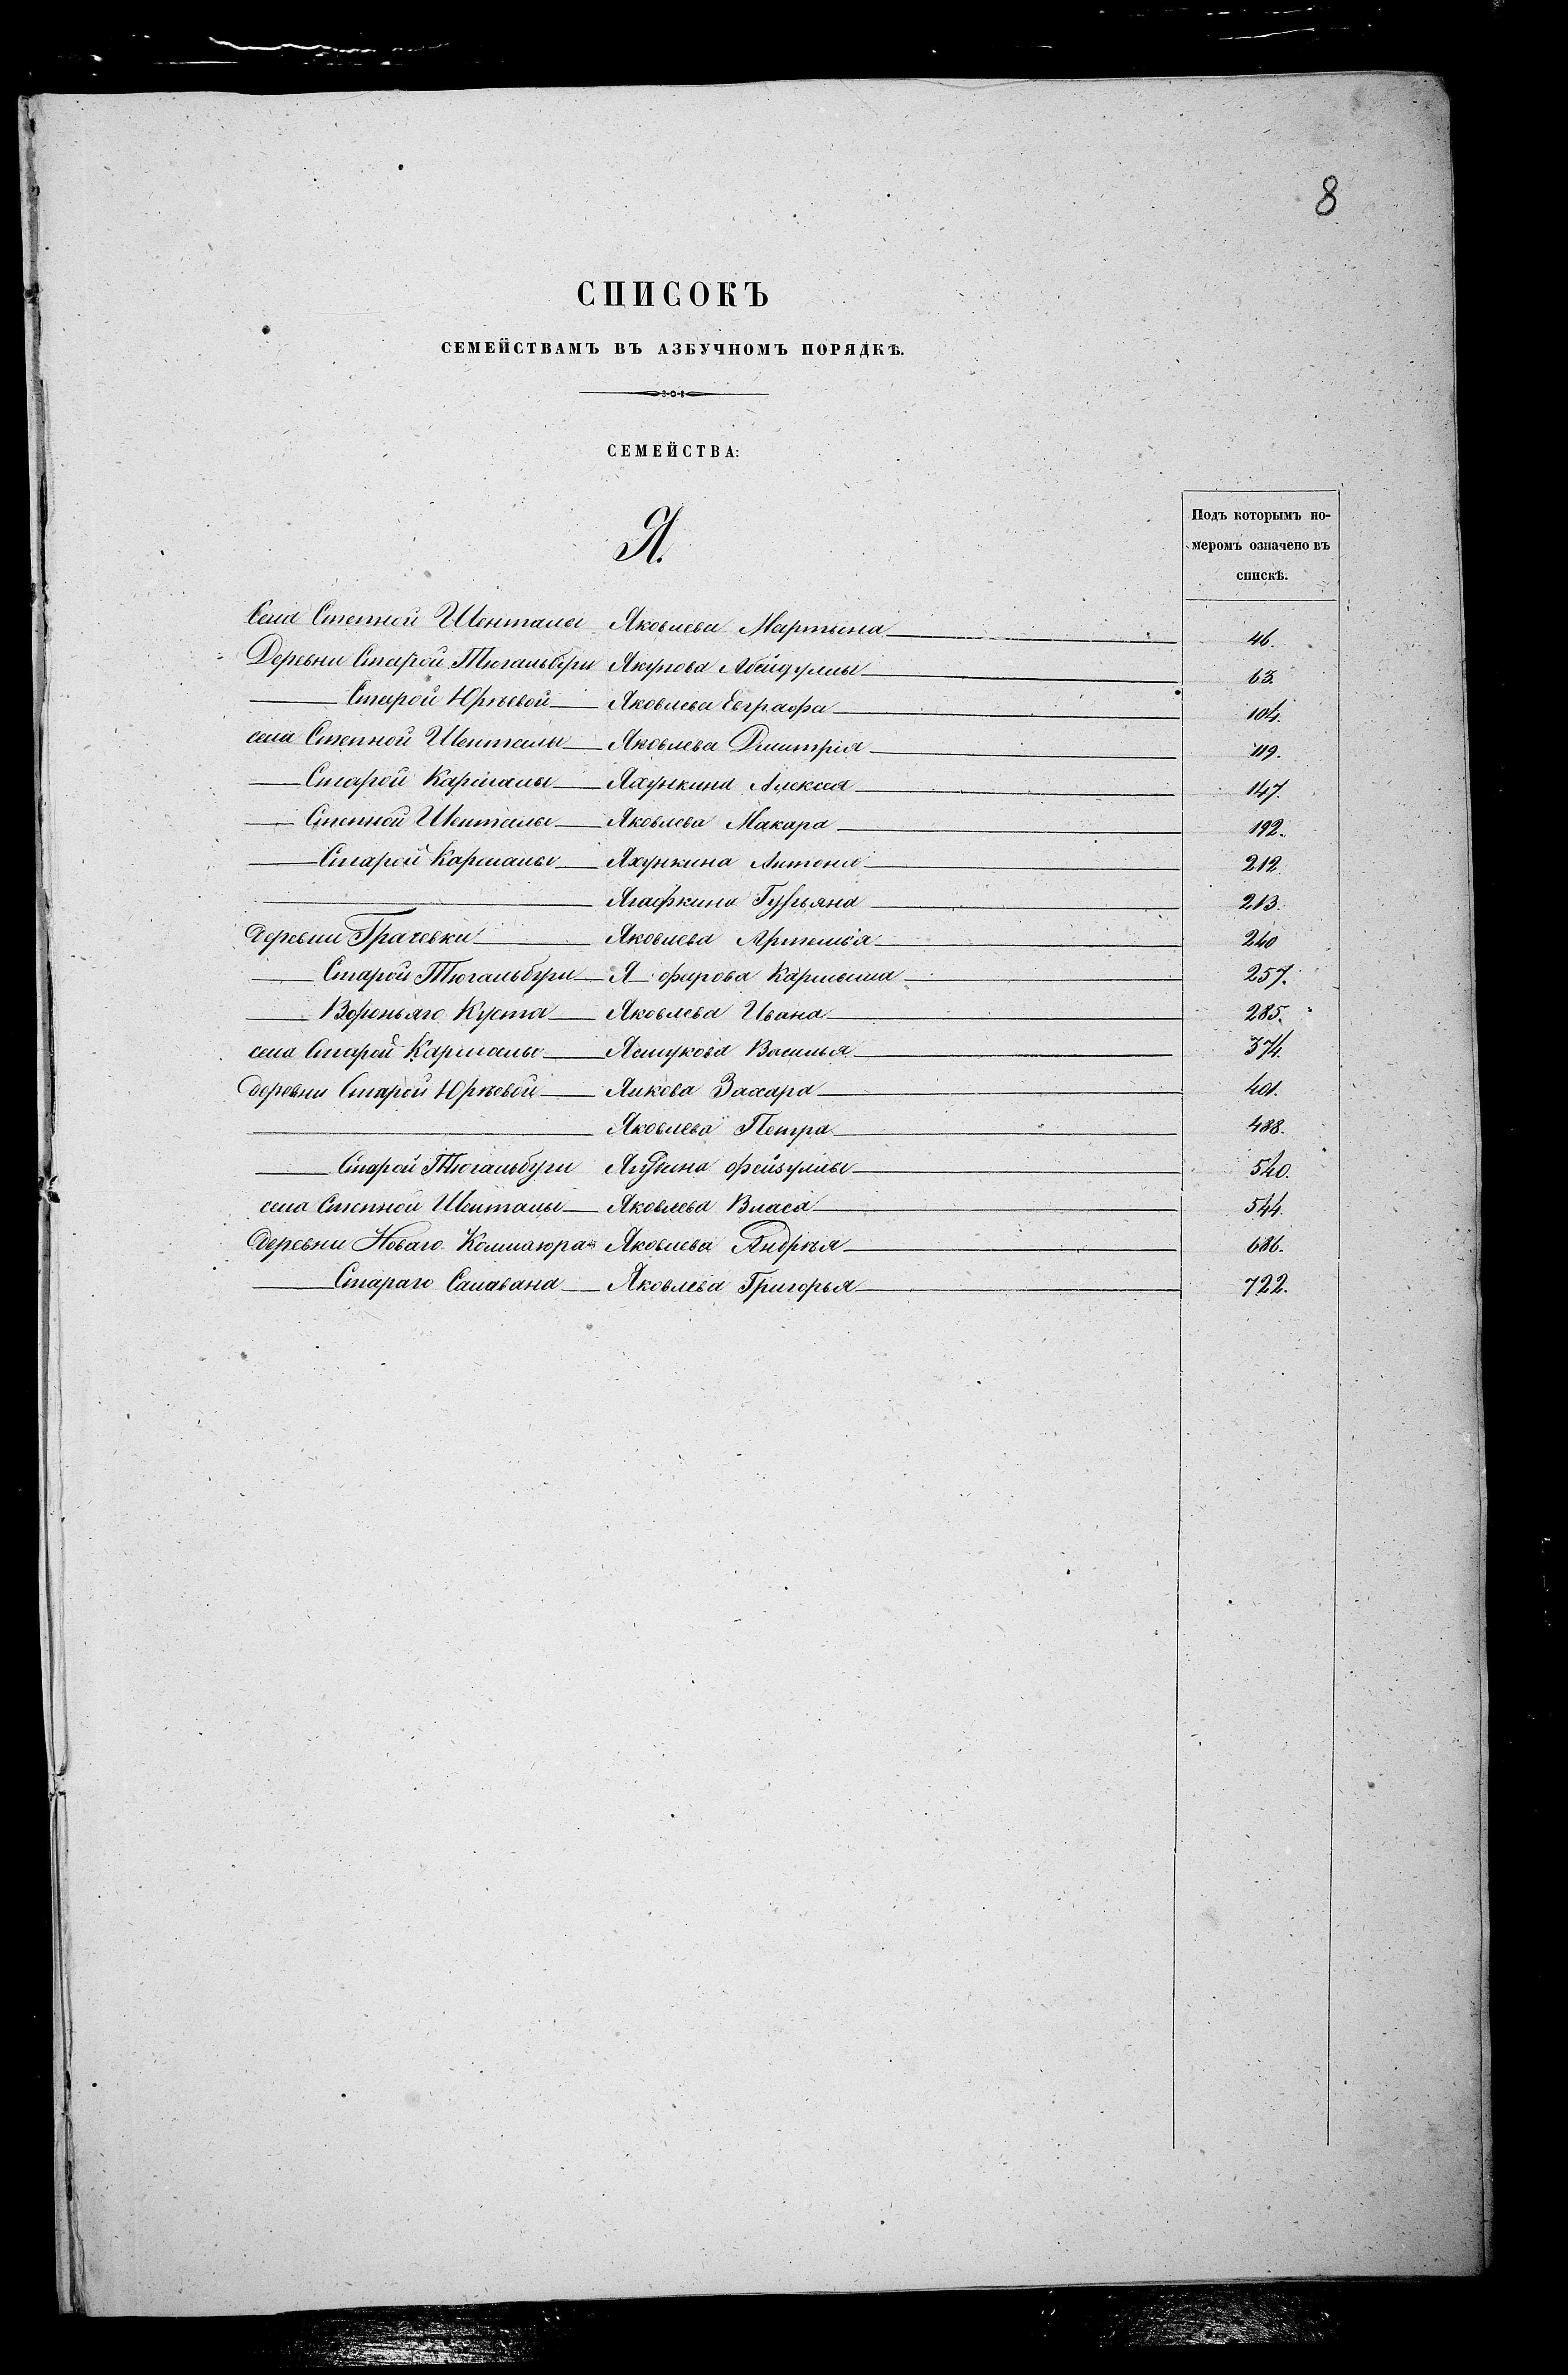 8
СПИСОКЪ
СЕМЕЙСТВАМЪ ВЪ АЗБУЧНОМЪ ПОРЯДКѢ.
СЕМЕЙСТВА:
Подъ которымъ но-
меромъ означено въ
спискѣ.
Я.
Села Степной Шенталы Яковлева Мартына 46.
Деревни Старой Тюгальбуги Якупова Абейдуллы 63.
Старой Юрѣевой Яковлева Евграфа 104.
села Степной Шенталы Яковлева Дмитрія 119.
Старой Кармалы Яхункина Алексея 147.
Степной Шенталы Яковлева Макара 192.
Старой Кармалы Яхункина Антона 212.
Ягафкина Гурьяна 213.
деревни Грачевки Яковлева Артемья 240
Старой Тюгальбуги Я фарова 257.
Вороньяго Куста Яковлева Ивана 285.
села Старой Кармалы Василья 374.
деревни Старой Юрѣевой Захара 401.
Яковлева Петра 488.
Старой Тюгальбуги Фейзуллы 540.
села Степной Шенталы Яковлева Власа 544.
деревни Новаго Яковлева Андрѣя 686.
Стараго Салавана Яковлева Григорья 722.